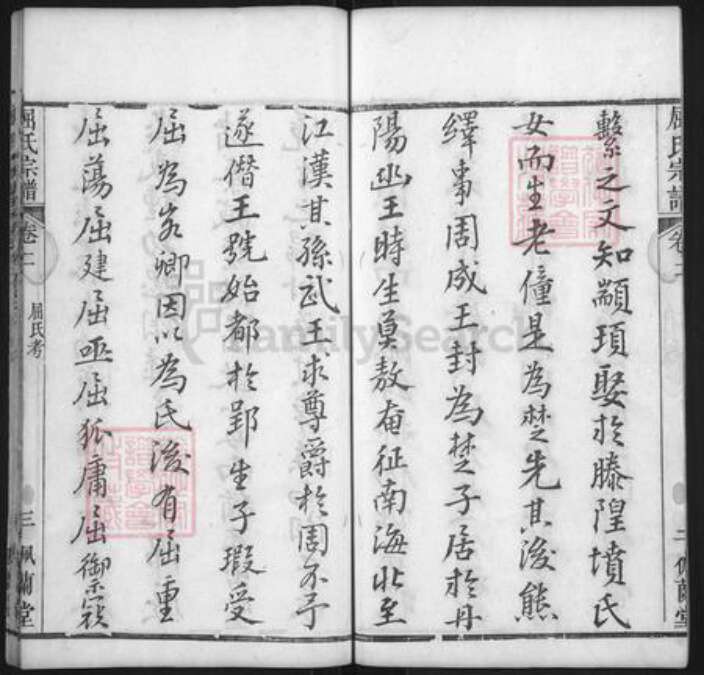 屈氏宗譜 卷二 二 佩蘭堂
繫之文知顓頊娶於滕隍墳氏
女而生老僮是為楚先其後熊
繹事周成王封為楚子居於丹
陽幽王時生莫敖奄征南海北至
江漢其孫武王求尊爵於周不予
遂僭王號始都於郢生子瑕受
屈為客卿因以為氏後有屈重
屈蕩屈建屈巫屈狐庸屈御寇
屈氏宗譜 卷二 屈氏考 三 佩蘭堂
FamilySearch